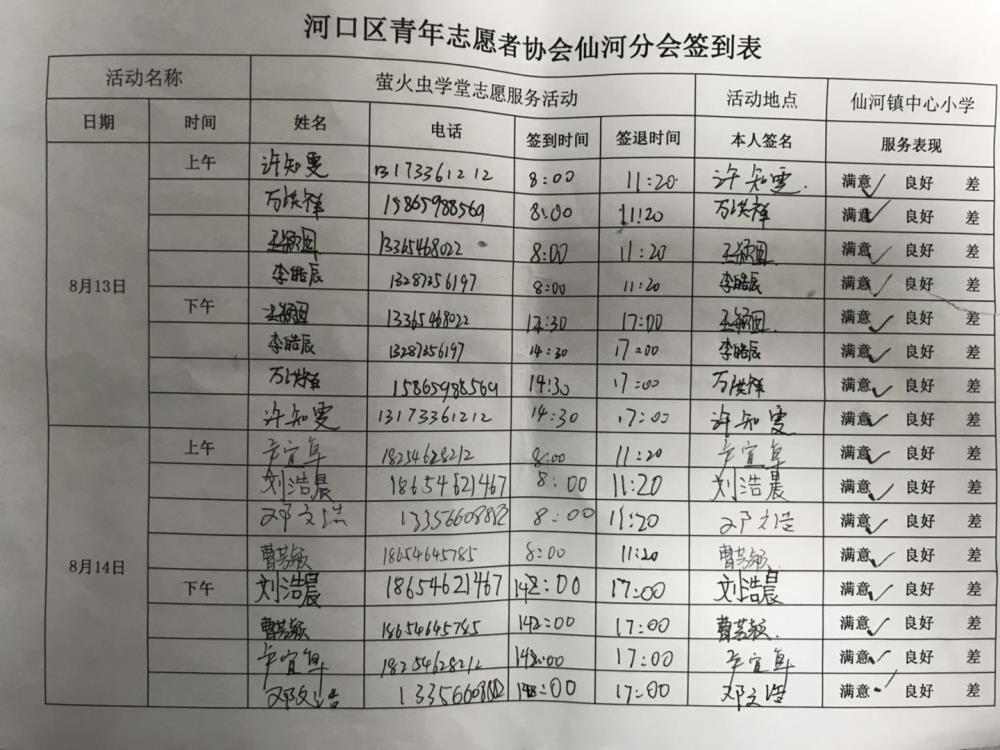 河口区青年志愿者协会仙河分会签到表
活动名称 萤火虫学堂志愿服务活动 活动地点 仙河镇中心小学
日期 时间 姓名 电话 签到时间 签退时间 本人签名 服务表现
8月13日 上午 许知雯 13173361212 8:00 11:20 许知雯. 满意✓ 良好 差
万洪祥 15865988569 8:00 11:20 万洪祥 满意✓ 良好 差
13365468022 8:00 11:20 满意✓ 良好 差
李皓辰 13287356197 8:00 11:20 李皓辰 满意✓ 良好 差
下午 13365468022 17:00 满意✓ 良好 差
李皓辰 13287356197 14:30 17:00 李皓辰 满意✓ 良好 差
万洪祥 15865988569 14:30 17:00 万洪祥 满意✓ 良好 差
许知雯 13173361212 14:30 17:00 许知雯 满意✓ 良好 差
8月14日 上午 18254628212 8:00 11:20 满意✓ 良好 差
刘浩晨 18654621467 8:00 11:20 刘浩晨 满意✓ 良好 差
邓文浩 8:00 11:20 邓文浩 满意✓ 良好 差
曹芸颖 18654645785 8:00 11:20 曹芸颖 满意✓ 良好 差
下午 刘浩晨 18654621467 17:00 刘浩晨 满意✓ 良好 差
曹芸颖 18654645785 17:00 曹芸颖. 满意✓ 良好 差
18254628212 17:00 满意✓ 良好 差
邓文浩 17:00 邓文浩 满意✓ 良好 差